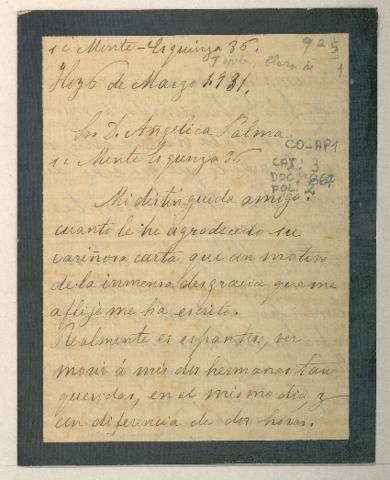 s/c Monte-Esquinza 36.
925
Tejero, Clara de
1
Hoy 6 de Marzo 1931.
Sra D. Angélica Palma
CO-AP1
s/c Monte Esquinza 36
CAJ: 3
DOC: 867
FOL: 2
Mi distinguida amiga:
cuanto le he agradecido su
cariñosa carta que con motivo
de la inmensa desgracia que me
aflije me ha escrito.
Realmente es espantoso, ver
morir á mis dos hermanas tan
queridas, en el mismo dia, y
con diferencia de dos horas.